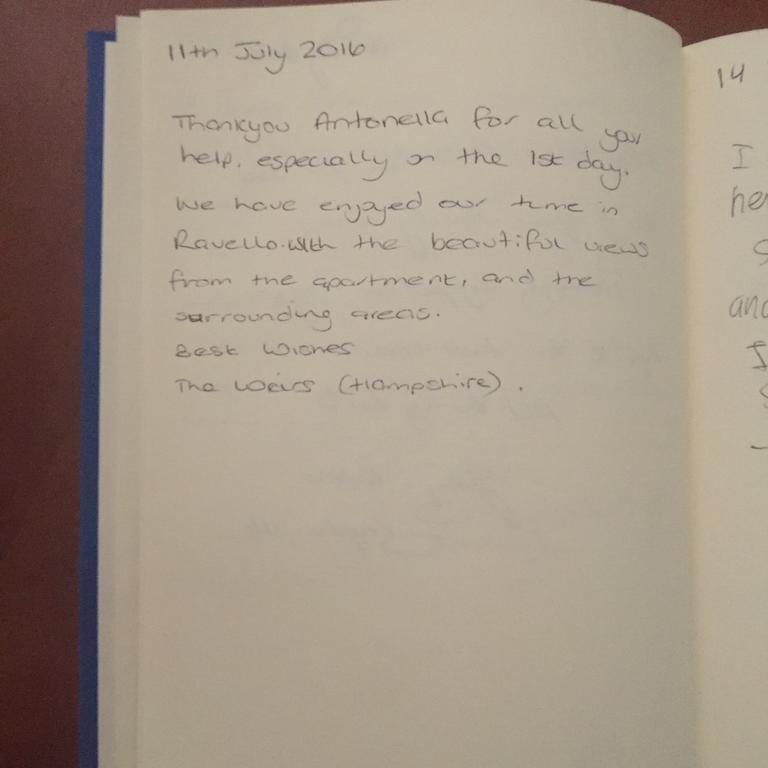 11th July 2016
Thankyou Antonella for all your
help, especially on the 1st day.
We have enjoyed our time in
Ravello. With the beautiful views
from the apartment, and the
surrounding areas.
Best Wishes
The Weirs (Hampshire).
14
I